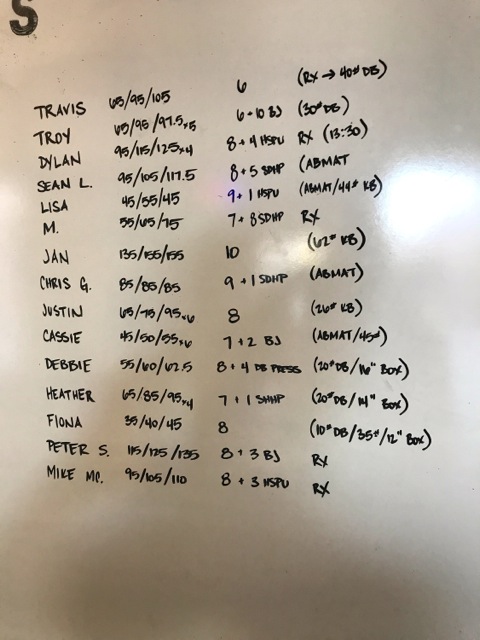 S
TRAVIS 65/95/105 6 (RX → 40# DB)
TROY 65/95/97.5x5 6+10 BJ (30# DB)
DYLAN 95/115/125x4 8+4 HSPU RX (13:30)
SEAN L. 95/105/117.5 8+5 SDHP (ABMAT
LISA 45/55/45 9+1 HSPU (ABMAT/44# KB)
M. 55/65/75 7+8 SDHP RX
JAN 135/155/155 10 (62# KB)
CHRIS G. 85/85/85 9+1 SDHP (ABMAT)
JUSTIN 65/75/95x6 8 (26# KB)
CASSIE 45/50/55x6 7+2 BJ (ABMAT/45#)
DEBBIE 55/60/62.5 8+4 DB PRESS (20# DB/16" BOX)
HEATHER 65/85/95x4 7+1 SHHP (20# DB/14" BOX)
FIONA 35/40/45 8 (10# DB/35#/12" BOX)
PETER S. 115/125/135 8+3 BJ RX
MIKE MC. 95/105/110 8+3 HSPU RX